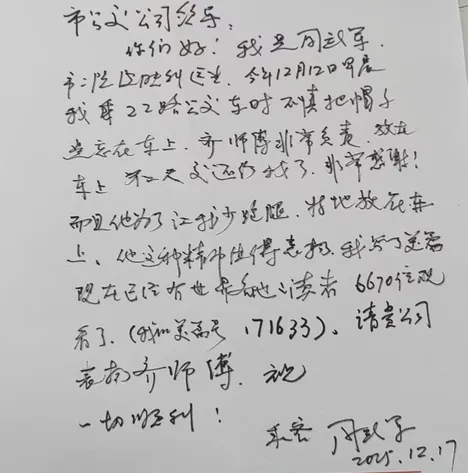 市公交公司领导：
你们好！我是周武军，
市二院退休医生，今年12月12日早晨
我乘22路公交车时不慎把帽子
遗忘在车上，齐师傅非常负责，放在
车上第二天交还给我了，非常感谢！
而且他为了让我少跑腿，特地放在车
上，他这种精神值得表扬，我写了美篇
现在已经有世界各地读者6670位观
看了，(我的美篇号171633)，请贵公司
表扬齐师傅，祝
一切顺利！
乘客 周武军
2025.12.17